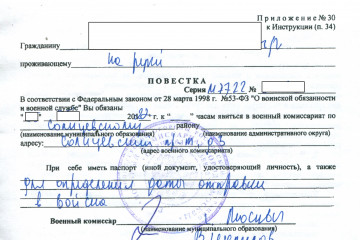 Приложение № 30
к Инструкции (п. 34)
Гражданину
проживающему на руки
ПОВЕСТКА
Серия №
В соответствии с Федеральным законом от 28 марта 1998 г. №53-ФЗ "О воинской обязанности
и военной службе" Вы обязаны
" " 20 г. к " " часам явиться в военный комиссариат по
району
(наименование муниципального образования) (наименование административного округа)
адресу:
(адрес военного комиссариата)
При себе иметь паспорт (иной документ, удостоверяющий личность), а также
для определения даты отправки
в войска
Военный комиссар Москвы
(наименование муниципального образования)